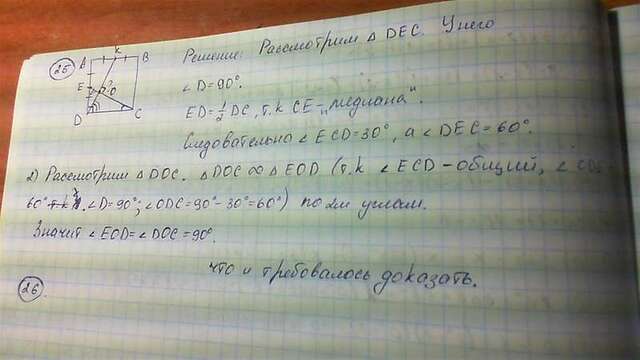 25
A K B
E O
D C
Решение: Рассмотрим △ DEC. У него
∠D=90°.
ED=½DC, т.к CE-„медиана“.
Следовательно ∠ECD=30°, а ∠DEC=60°.
2) Рассмотрим △DOC. △DOC ∞ △EOD (т.к ∠ECD-общий, ∠
60° ∠D=90°; ∠ODC=90°-30°=60°) по 2м углам.
Значит ∠EOD=∠DOC=90°.
что и требовалось доказать.
26